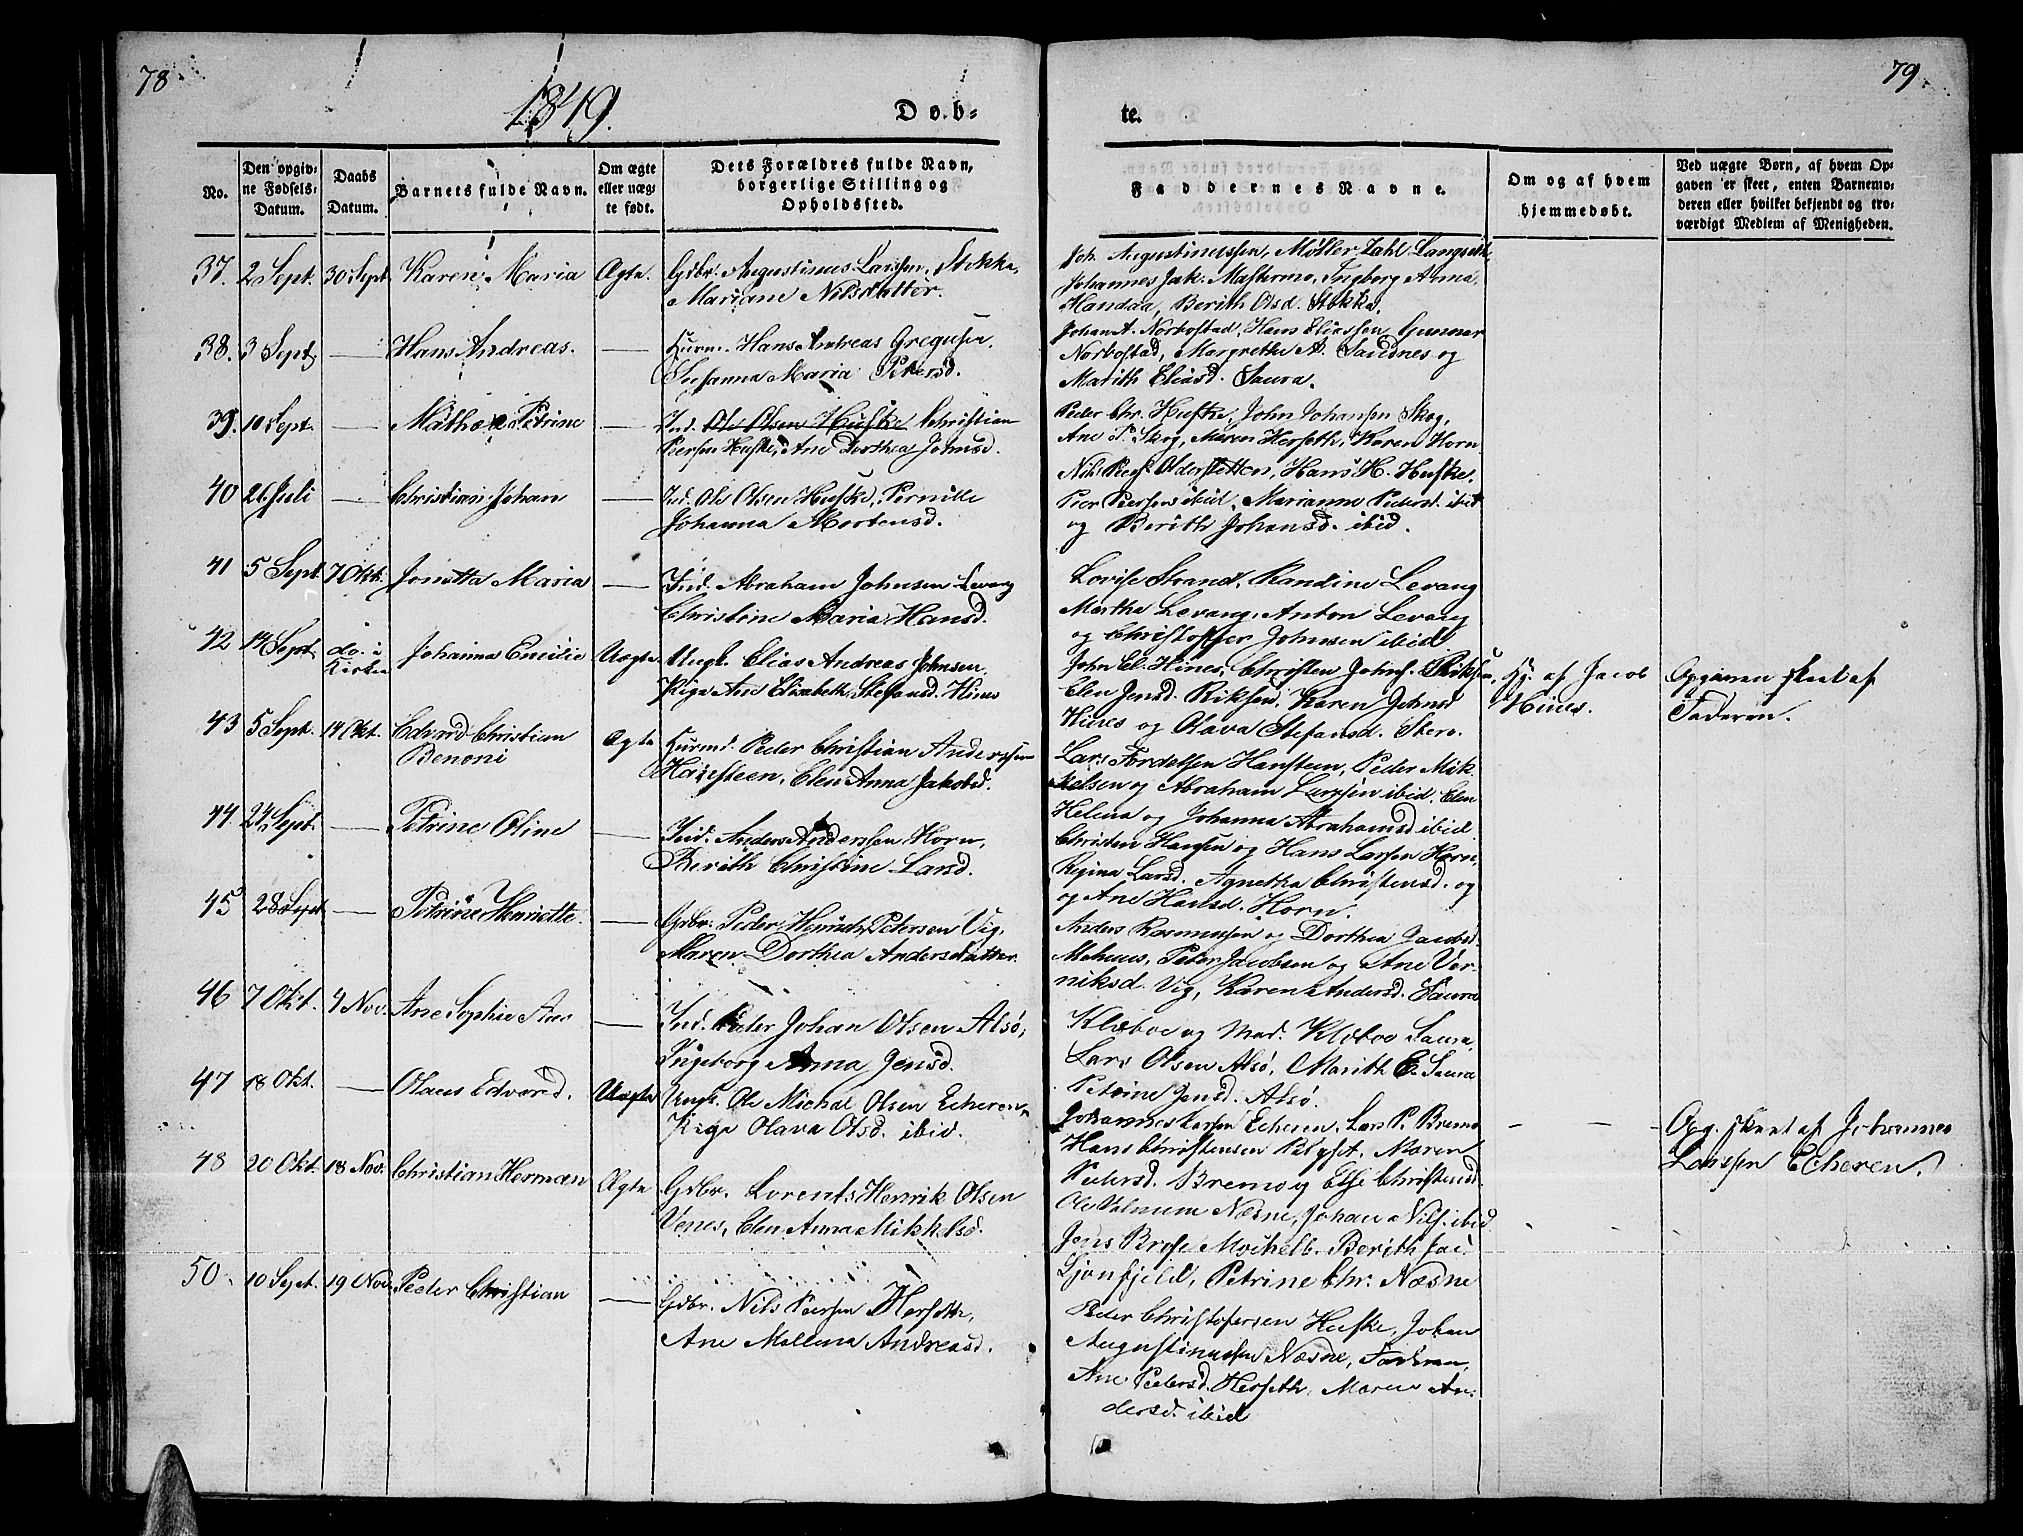 78
79
1849.
Døb=
te.
No.
Den opgiv=
ne Fødsels=
Datum.
Daabs
Datum.
Barnets fulde Navn.
Om ægte
eller uæg=
te født.
Dets Forældres fulde Navn,
borgerlige Stilling og
Opholdssted.
Faddernes Navne.
Om og af hvem
hjemmedøbt.
Ved uægte Børn, af hvem Op=
gaven er skeet, enten Barnemo=
deren eller hvilket bekjendt og tro=
værdigt Medlem af Menigheden.
37. 2 Sept. 30 Sept. Karen Maria Ægte. Gdbr. Augustinus Larssen, Stokka,
Mariane Nilsdatter.
Joh. Augustinussen, Møller Zahl Langseth,
Johannes Jak. Mastermo, Ingborg Anna
Handaa, Berith Olsd. Stokka.
38. 3 Sept. — Hans Andreas. — Huusm. Hans Andreas Gregusen.
Susanna Maria Petersd.
Johan A. Norbostad, Hans Eliassen, Gunnar
Norbostad, Margrethe A. Sandnes og
Marith Eliasd. Saura.
39. 10 Sept. — Mathea Petrine — Ind. Ole Olsen Huske Christian
Piersen Huske, Ane Dorthea Johnsd.
Peder Chr. Huske, John Johansen Skog,
Ane P. Skog, Maren Herseth, Karen Horn
40 26 Juli — Christian Johan — Ind. Ole Olsen Huske, Pernille
Johanna Mortensd.
Nils Peers. Olderstetten, Hans H. Huske,
Peer Peersen ibid, Marianne Pedersd. ibid
og Berith Johansd. ibid.
41 5 Sept. 7 Okt. Jonetta Maria — Ind. Abraham Johnsen Levang
Christine Maria Hansd.
Lovise Strand, Randine Levang
Marthe Levang, Anton Levang
og Christoffer Johnsen ibid
42 14 Sept. do. i
Kirken Johanna Emilie Uægte Ungk. Elias Andreas Johnsen,
Pige Ane Elisabeth Stefansd. Hines
John El. Hines, Christen Johns.
Elen Jensd. Riksen, Karen Johnsd
Hines og Olava Stefansd. Stero.
Hj. af Jacob
Hines.
Opgaven skeet af
Faderen.
43 5 Sept. 14 Okt. Edvard Christian
Benoni Ægte Huusmd. Peder Christian Anderssen
Hansteen, Elen Anna Jakobsd.
Lars Tordelsen Hansteen, Peder Mik
kelsen og Abraham Larssen ibid. Elen
Helena og Johanna Abrahamsd ibid
44. 24 Sept. — Petrine Oline — Ind. Anders Anderssen Horn,
Berith Christine Larsd.
Christen Hansen og Hans Larsen Horn,
Regina Larsd. Agnetha Christensd. og
og Ane Hansd. Horn.
45 28 Sept — Petrine Henriette — Gdbr. Peder Hinrich Petersen Vig,
Maren Dorthea Andersdatter.
Anders Rasmussen og Dorthea Jacobsd
Petter Jacobsen og Ane Ver
niksd. Vig, Karen Andersd. Saura
46 7 Okt. 4 Nov. Ane Sophie — Ind. Peder Johan Olsen Alsø,
Ingeborg Anna Jensd.
Klæboe og Mad. Klæboe Saura,
Lars Olsen Alsø, Marith E. Saura
Petrine Jensd. Alsø.
47 18 Okt. — Olaus Edvard. Uægte Ungk. Ole Michal Olsen Echeren
Pige Olava Olsd. ibid.
Johannes Larssen Echeren, Lars P. Bremo
Hans Christensen Maren
Pedersd. Bremo og Else Christensd.
Opg. skeet af Johannes
Larssen Echeren.
48 20 Okt. 18 Nov. Christian Herman Ægte Gdbr. Lorents Henrik Olsen
Venes, Elen Anna Mikkelsd.
Ole Valmum Næsne, Johan Nils. ibid
Jens Brose Berith Jac.
Sjonfjeld, Petrine Chr. Næsne
50 10 Sept. 19 Nov. Peder Christian — Gdbr. Nils Peersen Herseth,
Ane Mallena Andreasd.
Peder Christofersen Huske, Johan
Augustinussen Næsne, Faderen,
Ane Pedersd. Herseth, Maren An
dersd. ibid